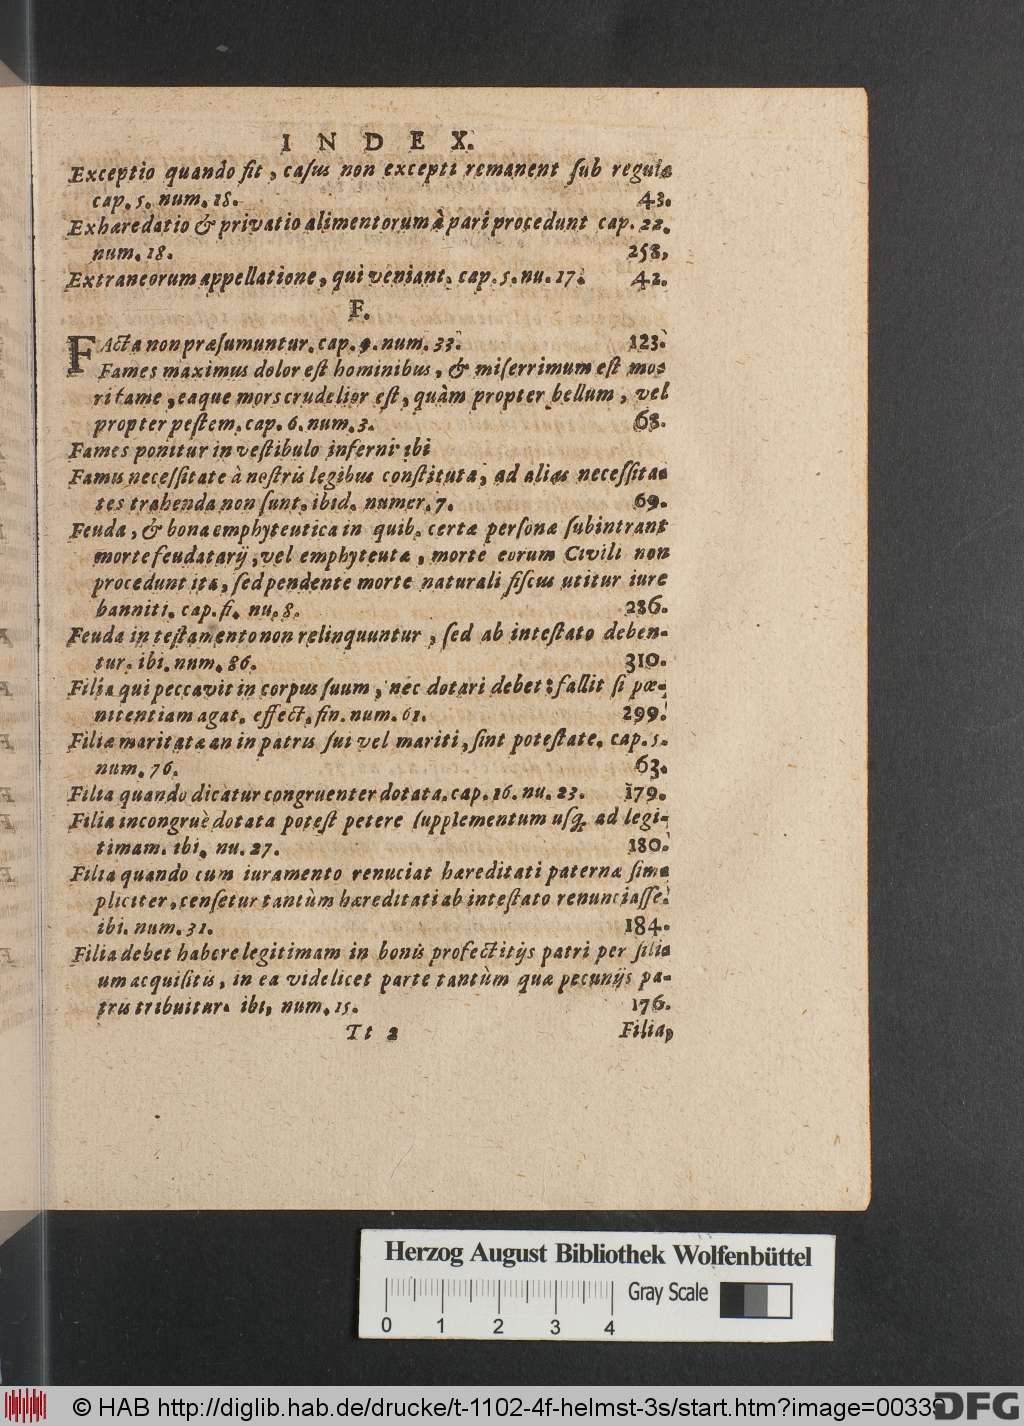 INDEX.
Exceptio quando fit, casus non excepti remanent sub regula
cap. 5. num. 18. 43.
Exhæredatio & privatio alimentorum à pari procedunt cap. 22.
num. 18. 258,
Extraneorum appellatione, qui veniant. cap. 5. nu. 17. 42.
F.
FActa non præsumuntur. cap. 9. num. 33. 123.
Fames maximus dolor est hominibus, & miserrimum est mo-
ri fame, eaque mors crudelior est, quàm propter bellum, vel
propter pestem. cap. 6. num. 3. 68.
Fames ponitur in vestibulo inferni ibi
Famis necessitate à nostris legibus constituta, ad alias necessita-
tes trahenda non sunt. ibid. numer. 7. 69.
Feuda, & bona emphyteutica in quib. certæ personæ subintrant
morte feudatarij, vel emphyteutæ, morte eorum Civili non
procedunt ita, sed pendente morte naturali fiscus utitur iure
banniti. cap. fi. nu. 8. 286.
Feuda in testamento non relinquuntur, sed ab intestato deben-
tur. ibi. num. 86. 310.
Filia qui peccavit in corpus suum, nec dotari debet: fallit si pœ-
nitentiam agat. effect. fin. num. 61. 299.
Filiæ maritatæ an in patris sui vel mariti, sint potestate. cap. 5.
num. 76. 63.
Filia quando dicatur congruenter dotata. cap. 16. nu. 23. 179.
Filia incongruè dotata potest petere supplementum usq; ad legi-
timam. ibi. nu. 27. 180.
Filia quando cum iuramento renuciat hæreditati paternæ sim-
pliciter, censetur tantùm hæreditati ab intestato renunciasse.
ibi. num. 31. 184.
Filia debet habere legitimam in bonis profectitijs patri per fili-
um acquisitis, in ea videlicet parte tantùm quæ pecunijs pa-
tris tribuitur. ibi, num. 15. 176.
Tt 2 Filia,
Herzog August Bibliothek Wolfenbüttel
Gray Scale
0 1 2 3 4
© HAB http://diglib.hab.de/drucke/t-1102-4f-helmst-3s/start.htm?image=00339
DFG